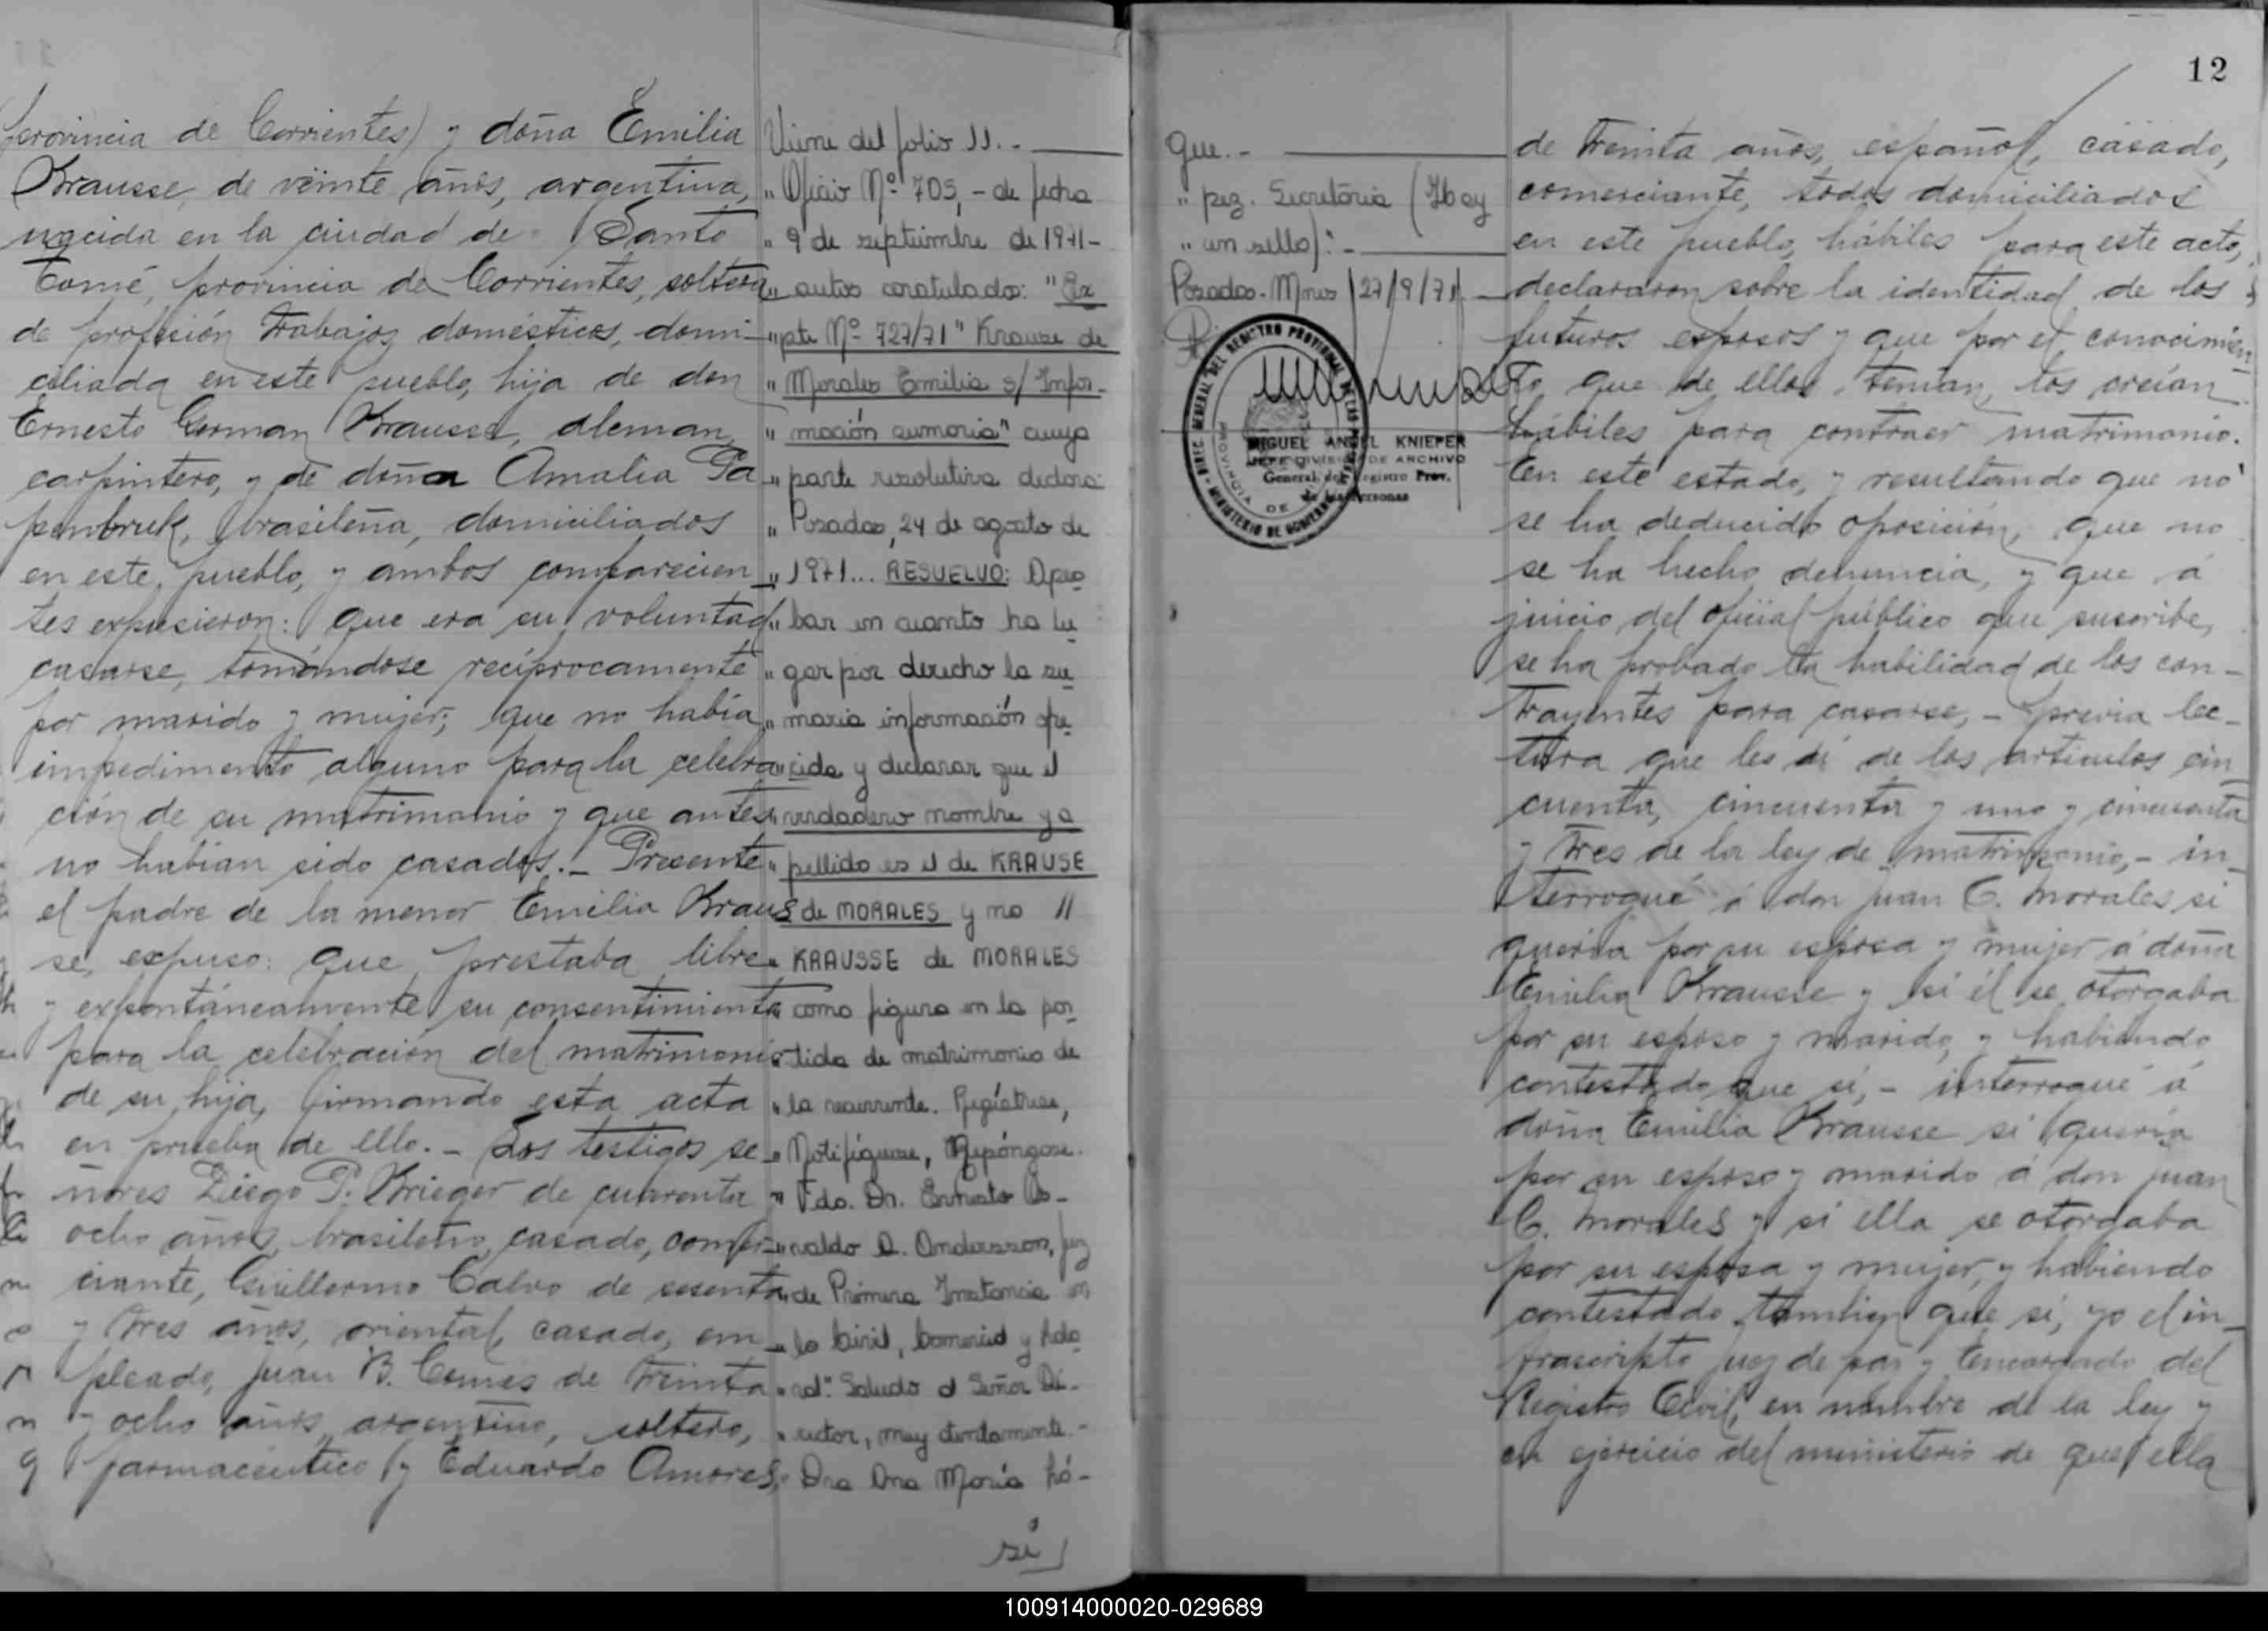 provincia de Corrientes) y doña Emilia
Krausse, de veinte años, argentina,
nacida en la ciudad de Santo
Tomé, provincia de Corrientes, soltera,
de profesión trabajos domésticos, domi-
ciliada en este pueblo, hija de don
Ernesto German Krausse, aleman,
carpintero, y de doña Amalia Pa
penbruk, brasileña, domiciliados
en este pueblo, y ambos comparecien-
tes expusieron: que era su voluntad
casarse, tomándose recíprocamente
por marido y mujer; que no había
impedimento alguno para la celebra
ción de su matrimonio y que antes
no habían sido casados.- Presente
el padre de la menor Emilia Kraus
se, expuso: que prestaba libre
y expontáneamente su consentimiento
para la celebración del matrimonio
de su hija, firmando esta acta
en prueba de ello.- Los testigos se-
ñores Diego P. Krieger de cuarenta
ocho años, brasileño, casado, comer-
ciante, Guillermo Calvo de sesenta
y tres años, oriental, casado, em-
pleado, Juan B. Comes de treinta
y ocho años, argentino, soltero,
farmacéutico y Eduardo Amores,
Viene del folio 11.-
" Oficio Nº 705,- de fecha
" 9 de septiembre de 1971-
" autos caratulado: "Ex
" pte Nº 727/71" Krause de
" Morales Emilia s/ Infor-
" mación sumaria" cuya
" parte resolutiva declara:
" Posadas, 24 de agosto de
" 1971... RESUELVO: Apro
" bar en cuanto ha lu
" gar por derecho la su
" maria información ofre
" cida y declarar que el
" verdadero nombre y a
" pellido es el de KRAUSE
de MORALES y no //
" KRAUSSE de MORALES
" como figura en la par
tida de matrimonio de
" la recurrente. Regístrese,
" Notifíquese, Repóngase.
" Fdo. Dr. Ernesto Os-
" valdo A. Andersson, Juez
" de Primera Instancia en
" lo Civil, Comercial y
" Saludo al Señor Di-
" rector, muy atentamente.-
" Dra Ana María
si
que.-
" pez. Secretaria (Hay
" un sello):-
Posadas. Mnes 27/9/71
DIREC. GENERAL DEL REGISTRO PROVINCIAL DE LAS PERSONAS - MINISTERIO DE GOBIERNO
PROVINCIA DE
MIGUEL ANGEL KNIEPER
JEFE DIVISION DE ARCHIVO
General del Registro Prov.
de las Personas
12
de treinta años, español, casado,
comerciante, todos domiciliados
en este pueblo, hábiles para este acto,
declararon sobre la identidad de los
futuros esposos y que por el conocimien-
to que de ellos tenían, los creían
hábiles para contraer matrimonio.
En este estado, y resultando que no
se ha deducido oposición, que no
se ha hecho denuncia, y que á
juicio del oficial público que suscribe,
se ha probado la habilidad de los con-
trayentes para casarse,- previa lec-
tura que les dí de los artículos cin
cuenta, cincuenta y uno y cincuenta
y tres de la ley de matrimonio,- in-
terrogué á don Juan C. Morales si
quería por su esposa y mujer á doña
Emilia Krausse y si él se otorgaba
por su esposo y marido, y habiendo
contestado que sí,- interrogué á
doña Emilia Krausse si quería
por su esposo y marido á don Juan
C. Morales y si ella se otorgaba
por su esposa y mujer, y habiendo
contestado tambien que sí, yo el in-
frascripto juez de paz y Encargado del
Registro Civil, en nombre de la ley y
en ejercicio del ministerio de que ella
100914000020-029689